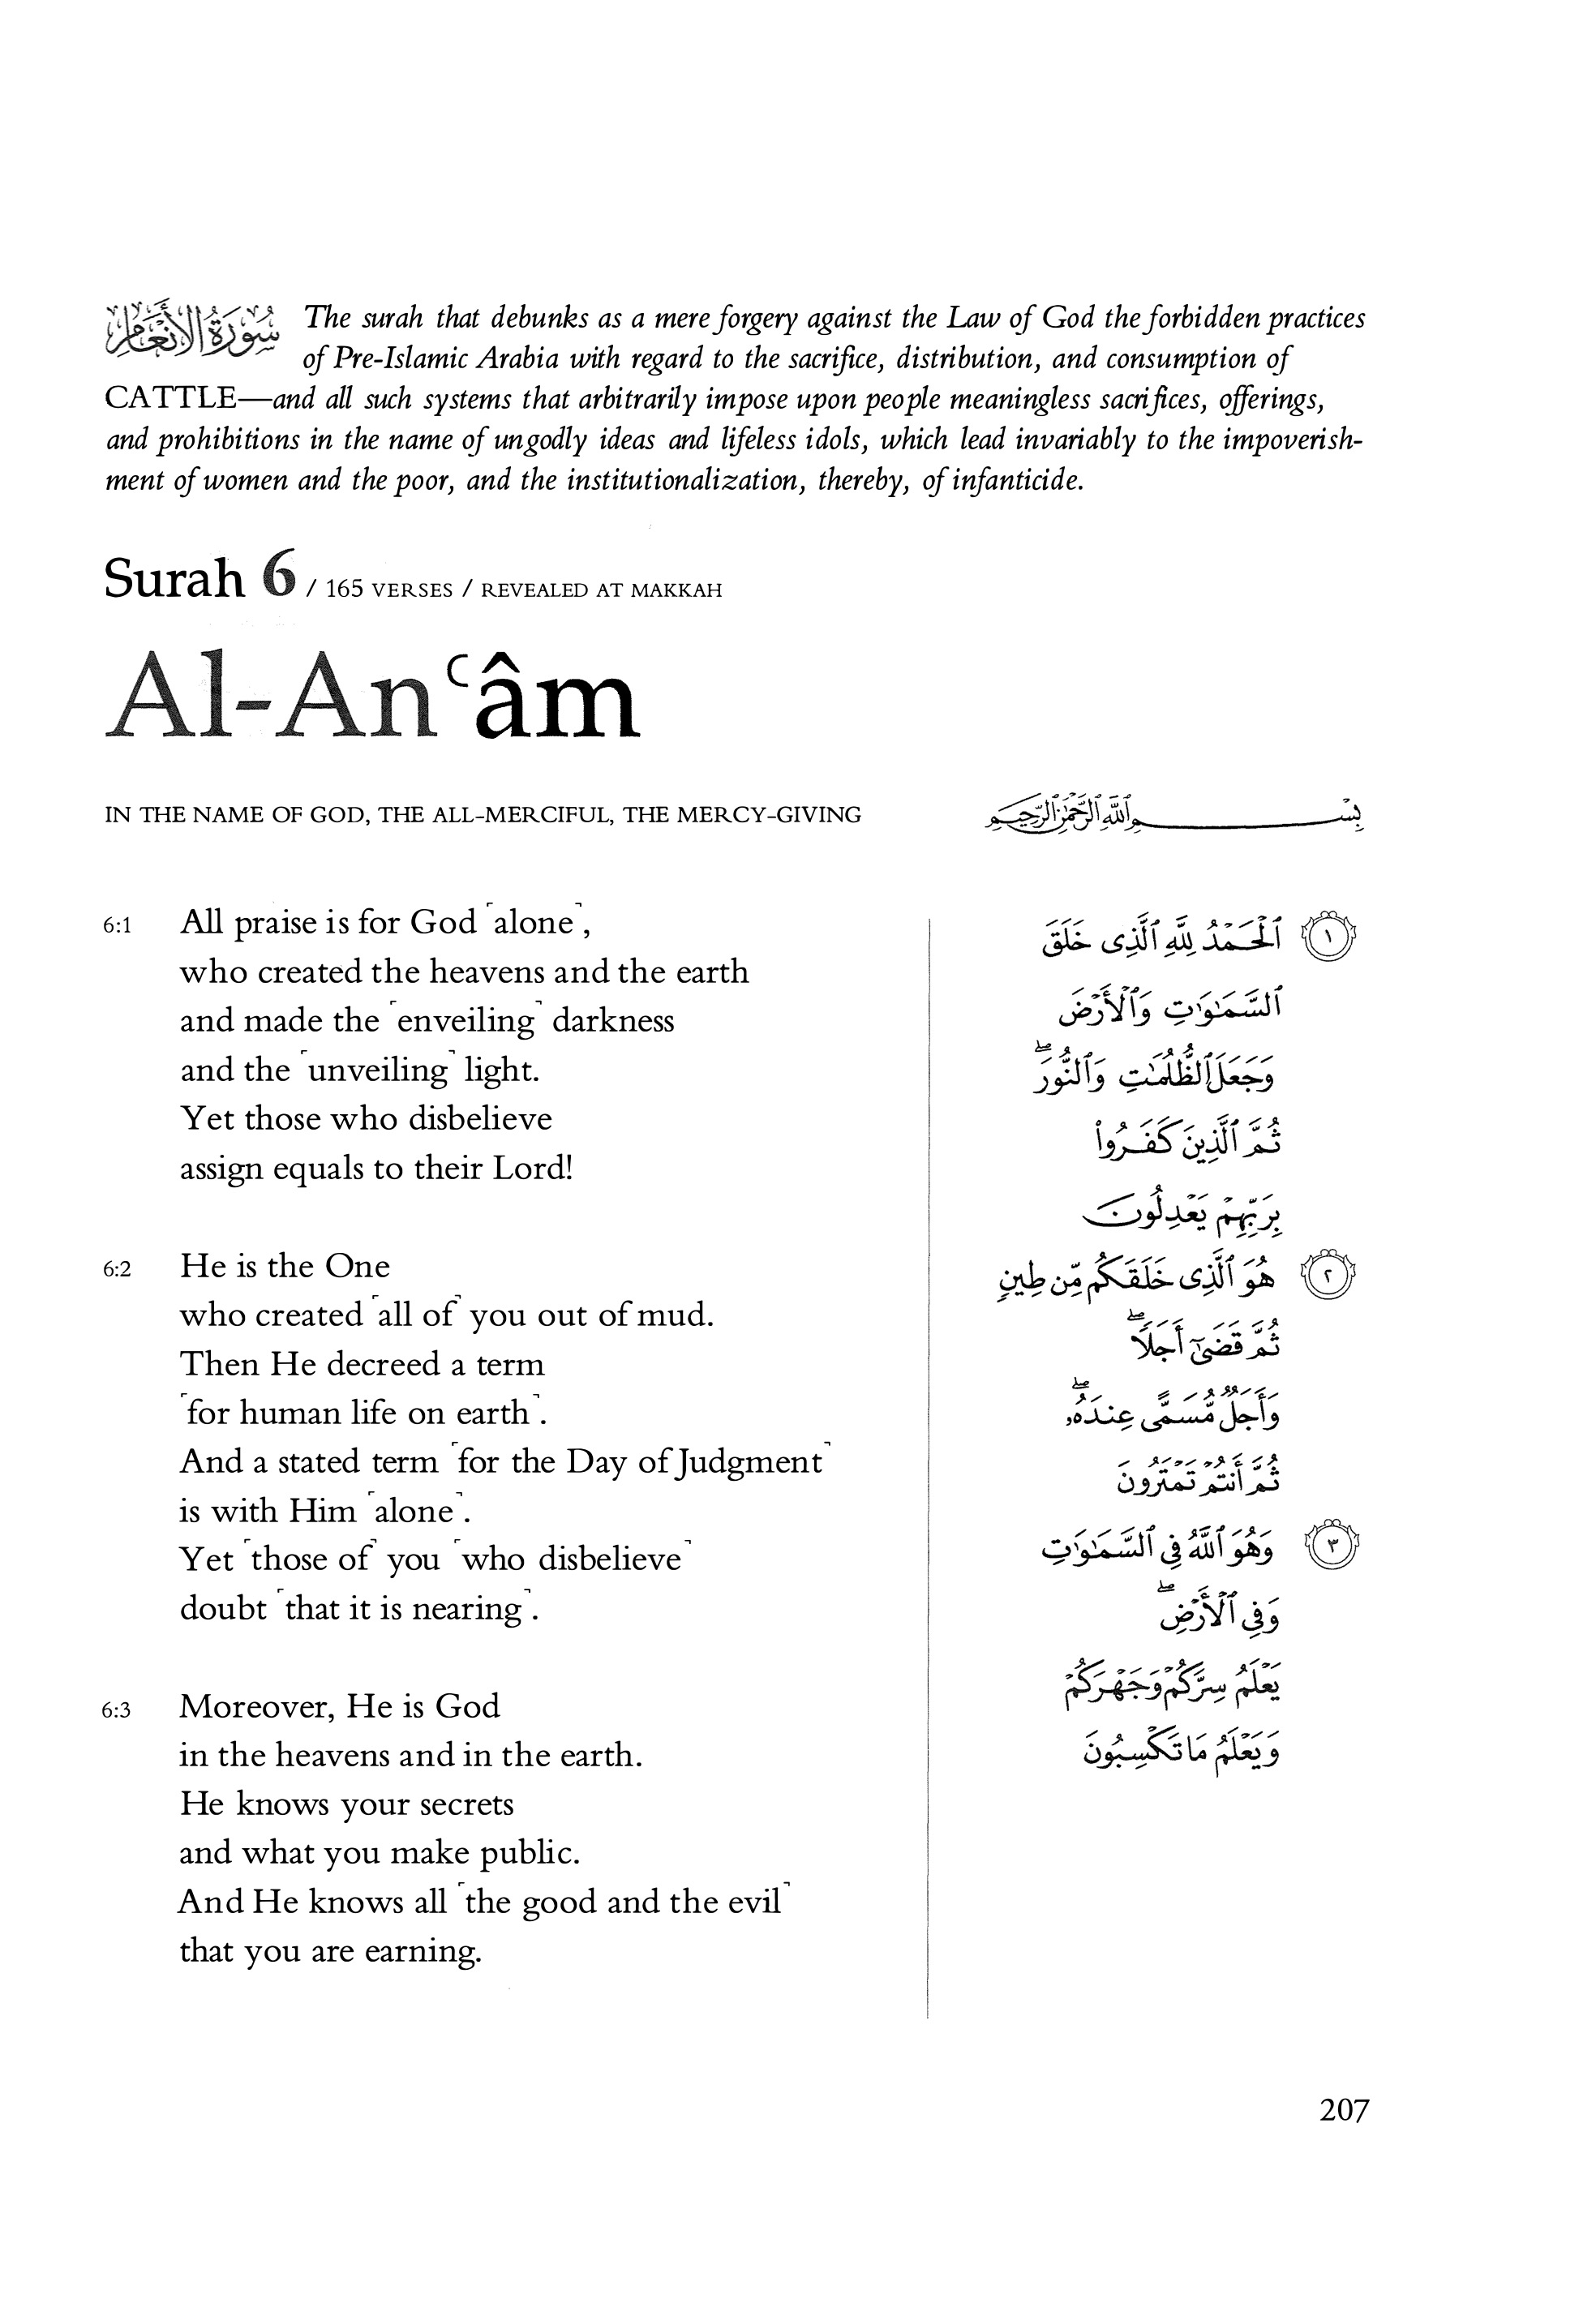 سُورَةُ الأَنْعَامِ The surah that debunks as a mere forgery against the Law of God the forbidden practices
of Pre-Islamic Arabia with regard to the sacrifice, distribution, and consumption of
CATTLE—and all such systems that arbitrarily impose upon people meaningless sacrifices, offerings,
and prohibitions in the name of ungodly ideas and lifeless idols, which lead invariably to the impoverish-
ment of women and the poor, and the institutionalization, thereby, of infanticide.
Surah 6 / 165 VERSES / REVEALED AT MAKKAH
Al-Anʿâm
IN THE NAME OF GOD, THE ALL-MERCIFUL, THE MERCY-GIVING
بِسْمِ ٱللَّهِ ٱلرَّحْمَٰنِ ٱلرَّحِيمِ
6:1 All praise is for God ⸢alone⸣,
who created the heavens and the earth
and made the ⸢enveiling⸣ darkness
and the ⸢unveiling⸣ light.
Yet those who disbelieve
assign equals to their Lord!
6:2 He is the One
who created ⸢all of⸣ you out of mud.
Then He decreed a term
⸢for human life on earth⸣.
And a stated term ⸢for the Day of Judgment⸣
is with Him ⸢alone⸣.
Yet ⸢those of⸣ you ⸢who disbelieve⸣
doubt ⸢that it is nearing⸣.
6:3 Moreover, He is God
in the heavens and in the earth.
He knows your secrets
and what you make public.
And He knows all ⸢the good and the evil⸣
that you are earning.
١ ٱلْحَمْدُ لِلَّهِ ٱلَّذِى خَلَقَ
ٱلسَّمَٰوَٰتِ وَٱلْأَرْضَ
وَجَعَلَ ٱلظُّلُمَٰتِ وَٱلنُّورَ ۖ
ثُمَّ ٱلَّذِينَ كَفَرُوا۟
بِرَبِّهِمْ يَعْدِلُونَ
٢ هُوَ ٱلَّذِى خَلَقَكُم مِّن طِينٍ
ثُمَّ قَضَىٰٓ أَجَلًا ۖ
وَأَجَلٌ مُّسَمًّى عِندَهُۥ ۖ
ثُمَّ أَنتُمْ تَمْتَرُونَ
٣ وَهُوَ ٱللَّهُ فِى ٱلسَّمَٰوَٰتِ
وَفِى ٱلْأَرْضِ ۖ
يَعْلَمُ سِرَّكُمْ وَجَهْرَكُمْ
وَيَعْلَمُ مَا تَكْسِبُونَ
207